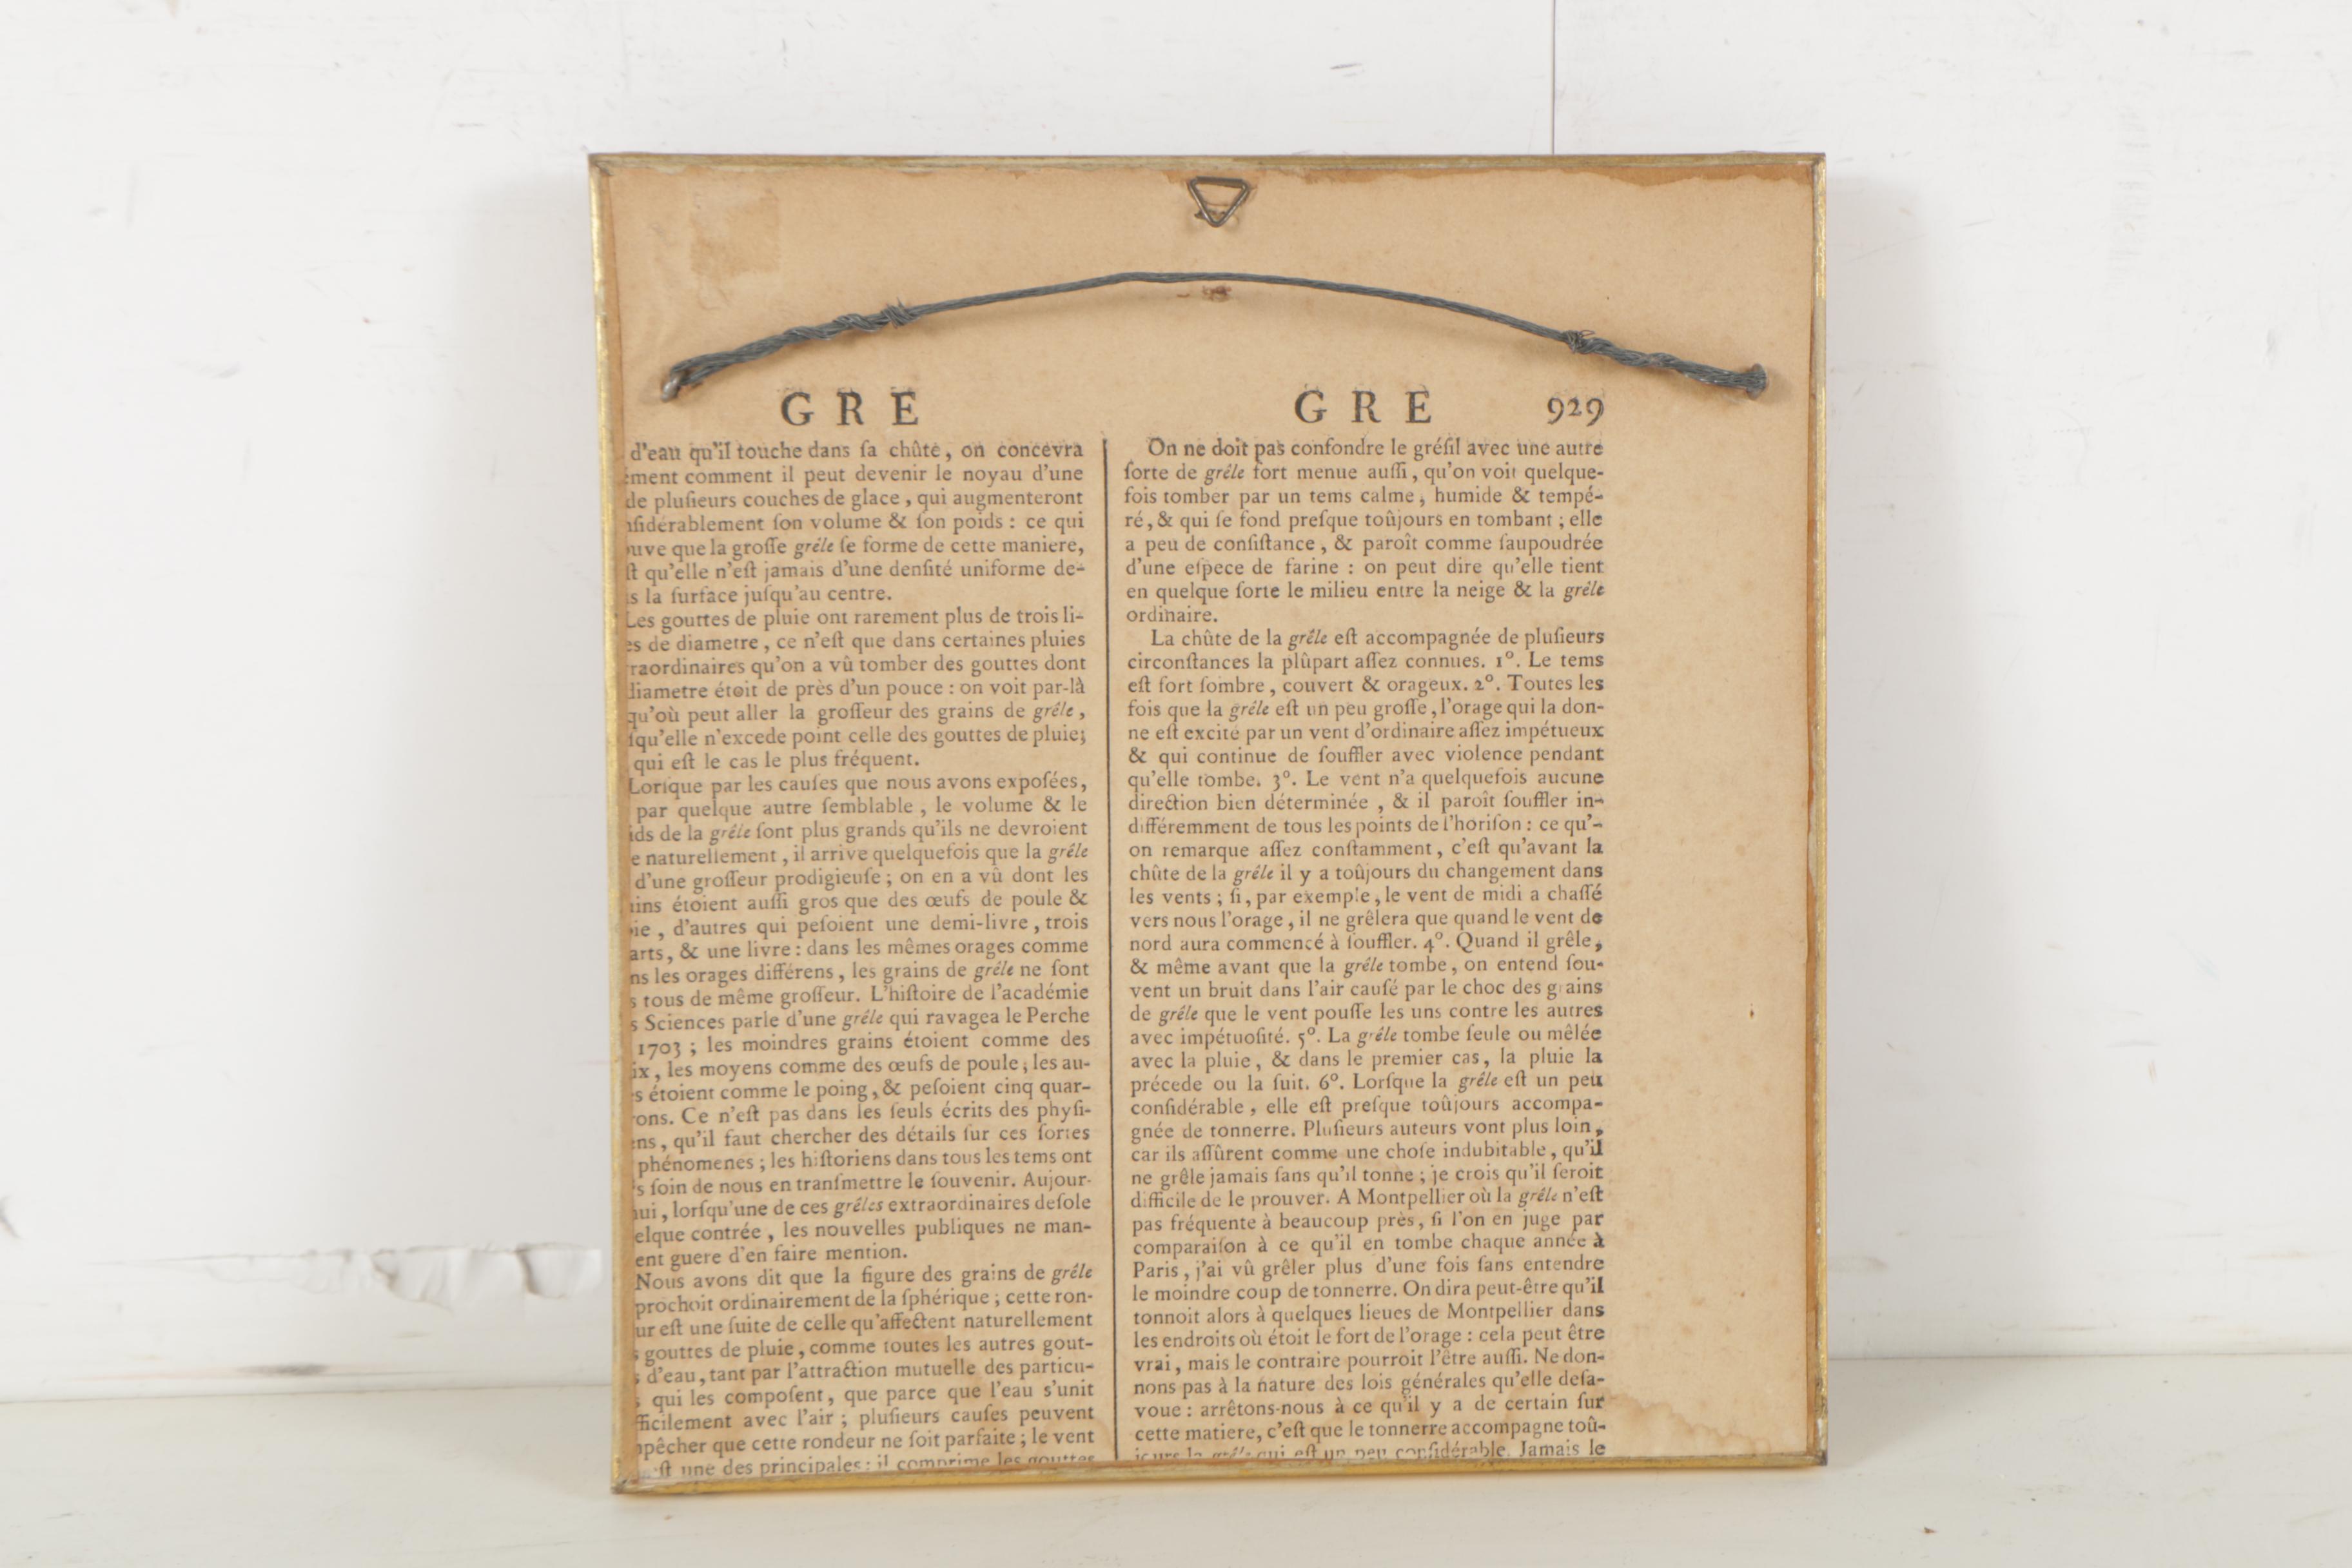 GRE
d'eau qu'il touche dans ſa chûte, on concevra
ment comment il peut devenir le noyau d'une
de pluſieurs couches de glace, qui augmenteront
ſidérablement ſon volume & ſon poids : ce qui
uve que la groſſe grêle ſe forme de cette maniere,
ſt qu'elle n'eſt jamais d'une denſité uniforme de-
s la ſurface juſqu'au centre.
Les gouttes de pluie ont rarement plus de trois li-
es de diametre, ce n'eſt que dans certaines pluies
raordinaires qu'on a vû tomber des gouttes dont
diametre étoit de près d'un pouce : on voit par-là
qu'où peut aller la groſſeur des grains de grêle,
ſqu'elle n'excede point celle des gouttes de pluie;
qui eſt le cas le plus fréquent.
Lorſque par les cauſes que nous avons expoſées,
par quelque autre ſemblable, le volume & le
ids de la grêle ſont plus grands qu'ils ne devroient
e naturellement, il arrive quelquefois que la grêle
d'une groſſeur prodigieuſe ; on en a vû dont les
ins étoient auſſi gros que des œufs de poule &
ie, d'autres qui peſoient une demi-livre, trois
arts, & une livre : dans les mêmes orages comme
ns les orages différens, les grains de grêle ne ſont
s tous de même groſſeur. L'hiſtoire de l'académie
s Sciences parle d'une grêle qui ravagea le Perche
1703 ; les moindres grains étoient comme des
ix, les moyens comme des œufs de poule, les au-
s étoient comme le poing, & peſoient cinq quar-
rons. Ce n'eſt pas dans les ſeuls écrits des phyſi-
ens, qu'il faut chercher des détails ſur ces ſortes
phénomenes ; les hiſtoriens dans tous les tems ont
s ſoin de nous en tranſmettre le ſouvenir. Aujour-
ui, lorſqu'une de ces grêles extraordinaires deſole
elque contrée, les nouvelles publiques ne man-
ent guere d'en faire mention.
Nous avons dit que la figure des grains de grêle
prochoit ordinairement de la ſphérique ; cette ron-
ur eſt une ſuite de celle qu'affectent naturellement
s gouttes de pluie, comme toutes les autres gout-
s d'eau, tant par l'attraction mutuelle des particu-
s qui les compoſent, que parce que l'eau s'unit
fficilement avec l'air ; pluſieurs cauſes peuvent
pêcher que cette rondeur ne ſoit parfaite ; le vent
ſt une des principales : il comprime les gouttes
GRE 929
On ne doit pas confondre le gréſil avec une autre
ſorte de grêle fort menue auſſi, qu'on voit quelque-
fois tomber par un tems calme, humide & tempé-
ré, & qui ſe fond preſque toûjours en tombant ; elle
a peu de conſiſtance, & paroît comme ſaupoudrée
d'une eſpece de farine : on peut dire qu'elle tient
en quelque ſorte le milieu entre la neige & la grêle
ordinaire.
La chûte de la grêle eſt accompagnée de pluſieurs
circonſtances la plûpart aſſez connues. 1°. Le tems
eſt fort ſombre, couvert & orageux. 2°. Toutes les
fois que la grêle eſt un peu groſſe, l'orage qui la don-
ne eſt excité par un vent d'ordinaire aſſez impétueux
& qui continue de ſouffler avec violence pendant
qu'elle tombe. 3°. Le vent n'a quelquefois aucune
direction bien déterminée, & il paroît ſouffler in-
différemment de tous les points de l'horiſon : ce qu'-
on remarque aſſez conſtamment, c'eſt qu'avant la
chûte de la grêle il y a toûjours du changement dans
les vents ; ſi, par exemple, le vent de midi a chaſſé
vers nous l'orage, il ne grêlera que quand le vent de
nord aura commencé à ſouffler. 4°. Quand il grêle,
& même avant que la grêle tombe, on entend ſou-
vent un bruit dans l'air cauſé par le choc des grains
de grêle que le vent pouſſe les uns contre les autres
avec impétuoſité. 5°. La grêle tombe ſeule ou mêlée
avec la pluie, & dans le premier cas, la pluie la
précede ou la ſuit. 6°. Lorſque la grêle eſt un peu
conſidérable, elle eſt preſque toûjours accompa-
gnée de tonnerre. Pluſieurs auteurs vont plus loin,
car ils aſſûrent comme une choſe indubitable, qu'il
ne grêle jamais ſans qu'il tonne ; je crois qu'il ſeroit
difficile de le prouver. A Montpellier où la grêle n'eſt
pas fréquente à beaucoup près, ſi l'on en juge par
comparaiſon à ce qu'il en tombe chaque année à
Paris, j'ai vû grêler plus d'une fois ſans entendre
le moindre coup de tonnerre. On dira peut-être qu'il
tonnoit alors à quelques lieues de Montpellier dans
les endroits où étoit le fort de l'orage : cela peut être
vrai, mais le contraire pourroit l'être auſſi. Ne don-
nons pas à la nature des lois générales qu'elle deſa-
voue : arrêtons-nous à ce qu'il y a de certain ſur
cette matiere, c'eſt que le tonnerre accompagne toû-
jours la grêle qui eſt un peu conſidérable. Jamais le